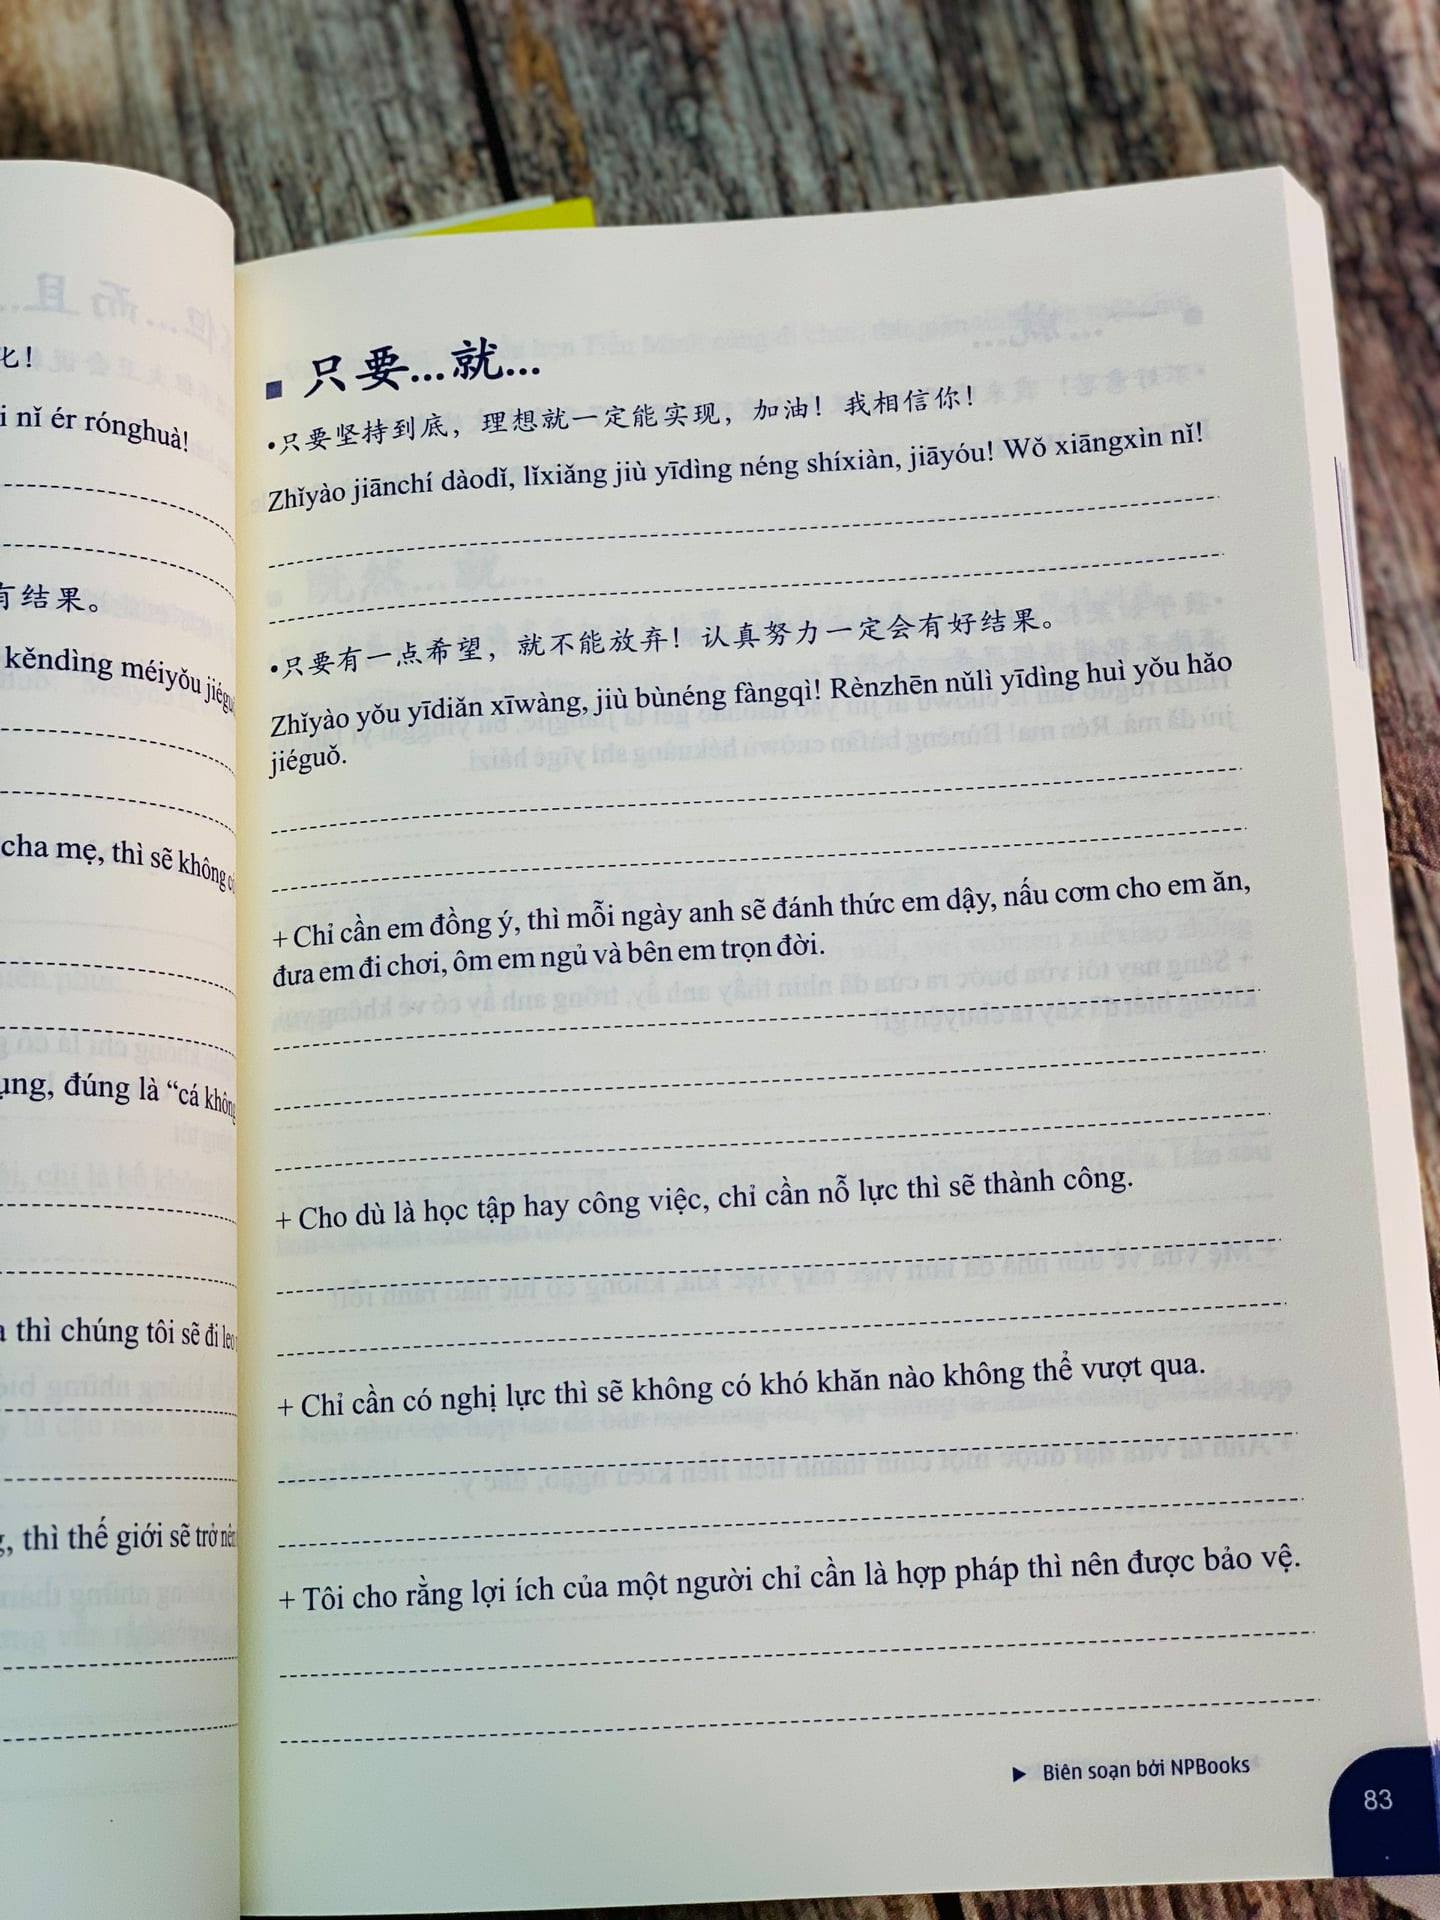 化！
i nǐ ér rónghuà!
有结果。
kěndìng méiyǒu
cha mẹ, thì sẽ không
đúng là “cá không
thì chúng tôi sẽ đi
thì thế giới sẽ trở nên
▪ 只要...就...
•只要坚持到底，理想就一定能实现，加油！我相信你！
Zhǐyào jiānchí dàodǐ, lǐxiǎng jiù yīdìng néng shíxiàn, jiāyóu! Wǒ xiāngxìn nǐ!
•只要有一点希望，就不能放弃！认真努力一定会有好结果。
Zhǐyào yǒu yīdiǎn xīwàng, jiù bùnéng fàngqì! Rènzhēn nǔlì yīdìng huì yǒu hǎo
jiéguǒ.
+ Chỉ cần em đồng ý, thì mỗi ngày anh sẽ đánh thức em dậy, nấu cơm cho em ăn,
đưa em đi chơi, ôm em ngủ và bên em trọn đời.
+ Cho dù là học tập hay công việc, chỉ cần nỗ lực thì sẽ thành công.
+ Chỉ cần có nghị lực thì sẽ không có khó khăn nào không thể vượt qua.
+ Tôi cho rằng lợi ích của một người chỉ cần là hợp pháp thì nên được bảo vệ.
▶ Biên soạn bởi NPBooks
83